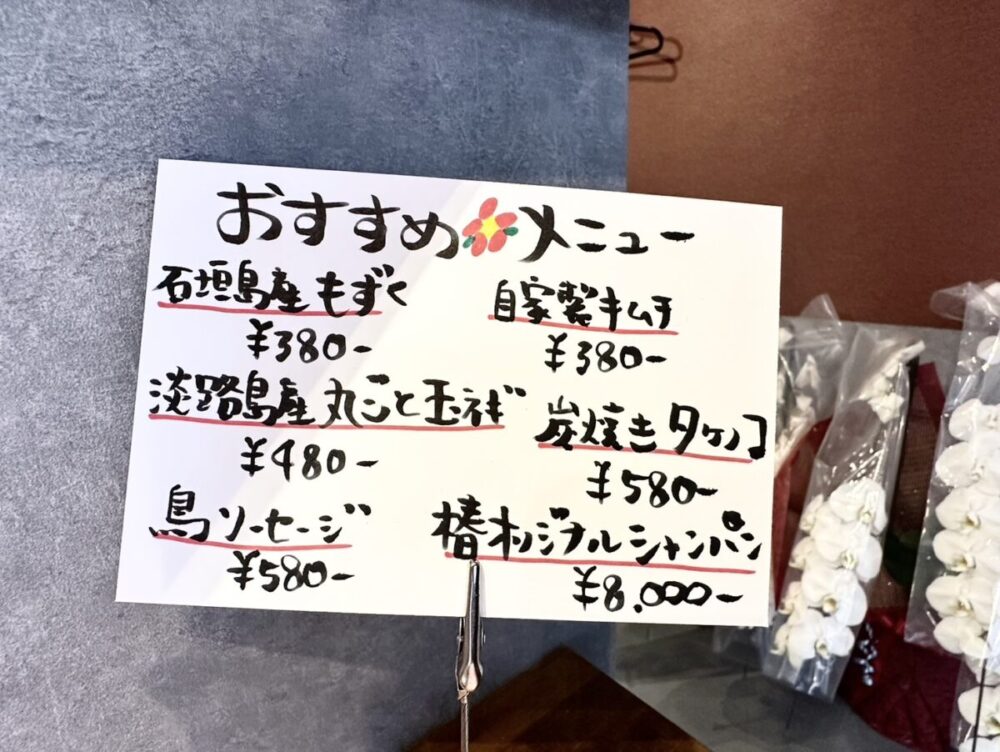 おすすめメニュー
石垣島産もずく
¥380-
自家製キムチ
¥380-
淡路島産丸ごと玉ネギ
¥480-
炭焼きタケノコ
¥580-
鳥ソーセージ
¥580-
椿オリジナルシャンパン
¥8,000-